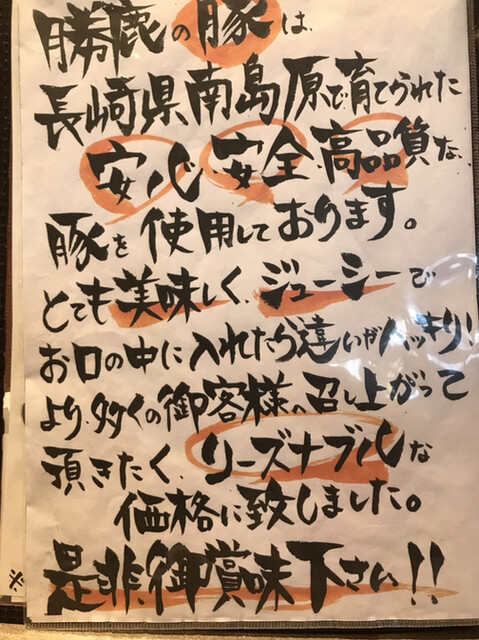 勝鹿の豚は、
長崎県南島原で育てられた
安心、安全、高品質な、
豚を使用しております。
とても美味しく、ジューシーで
お口の中に入れたら違いがハッキリ!
より、多くの御客様へ召し上がって
頂きたく、リーズナブルな
価格に致しました。
是非、御賞味下さい!!
※